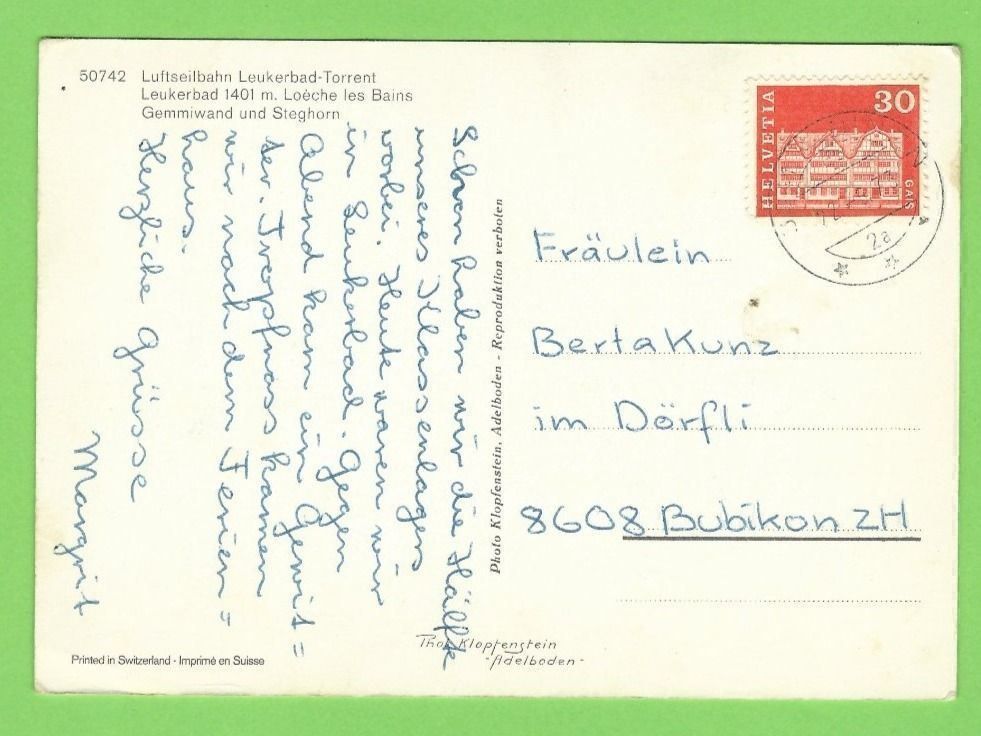 50742 Luftseilbahn Leukerbad-Torrent
Leukerbad 1401 m. Loèche les Bains
Gemmiwand und Steghorn
Schon haben wir die Hälfte
unseres Klassenlagers
vorbei. Heute waren wir
in Leukerbad. Gegen
Abend kam ein Gewit=
ter. Tropfnass kamen
wir nach dem Ferien=
haus.
Herzliche Grüsse
Margrit
Photo Klopfenstein, Adelboden - Reproduktion verboten
HELVETIA
30
GAIS
2a
Fräulein
Berta Kunz
im Dörfli
8608 Bubikon ZH
Klopfenstein
-Adelboden-
Printed in Switzerland · Imprimé en Suisse